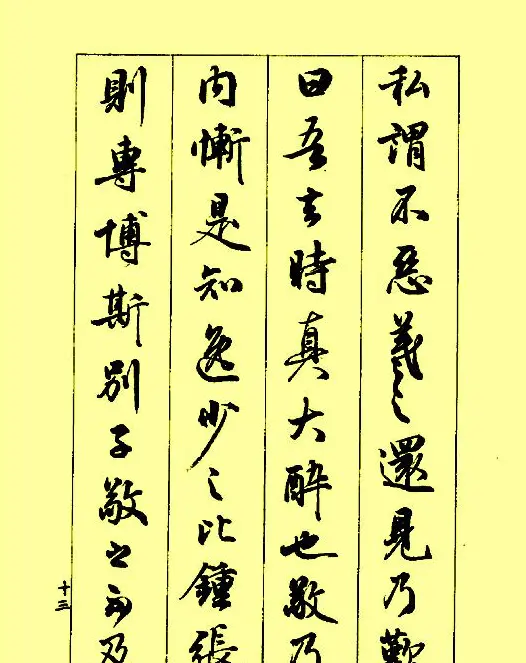 私謂不惡羲之還見乃歎
曰吾去時真大醉也敬乃
内慚是知逸少之比鍾張
則專博斯別子敬之不及
十三